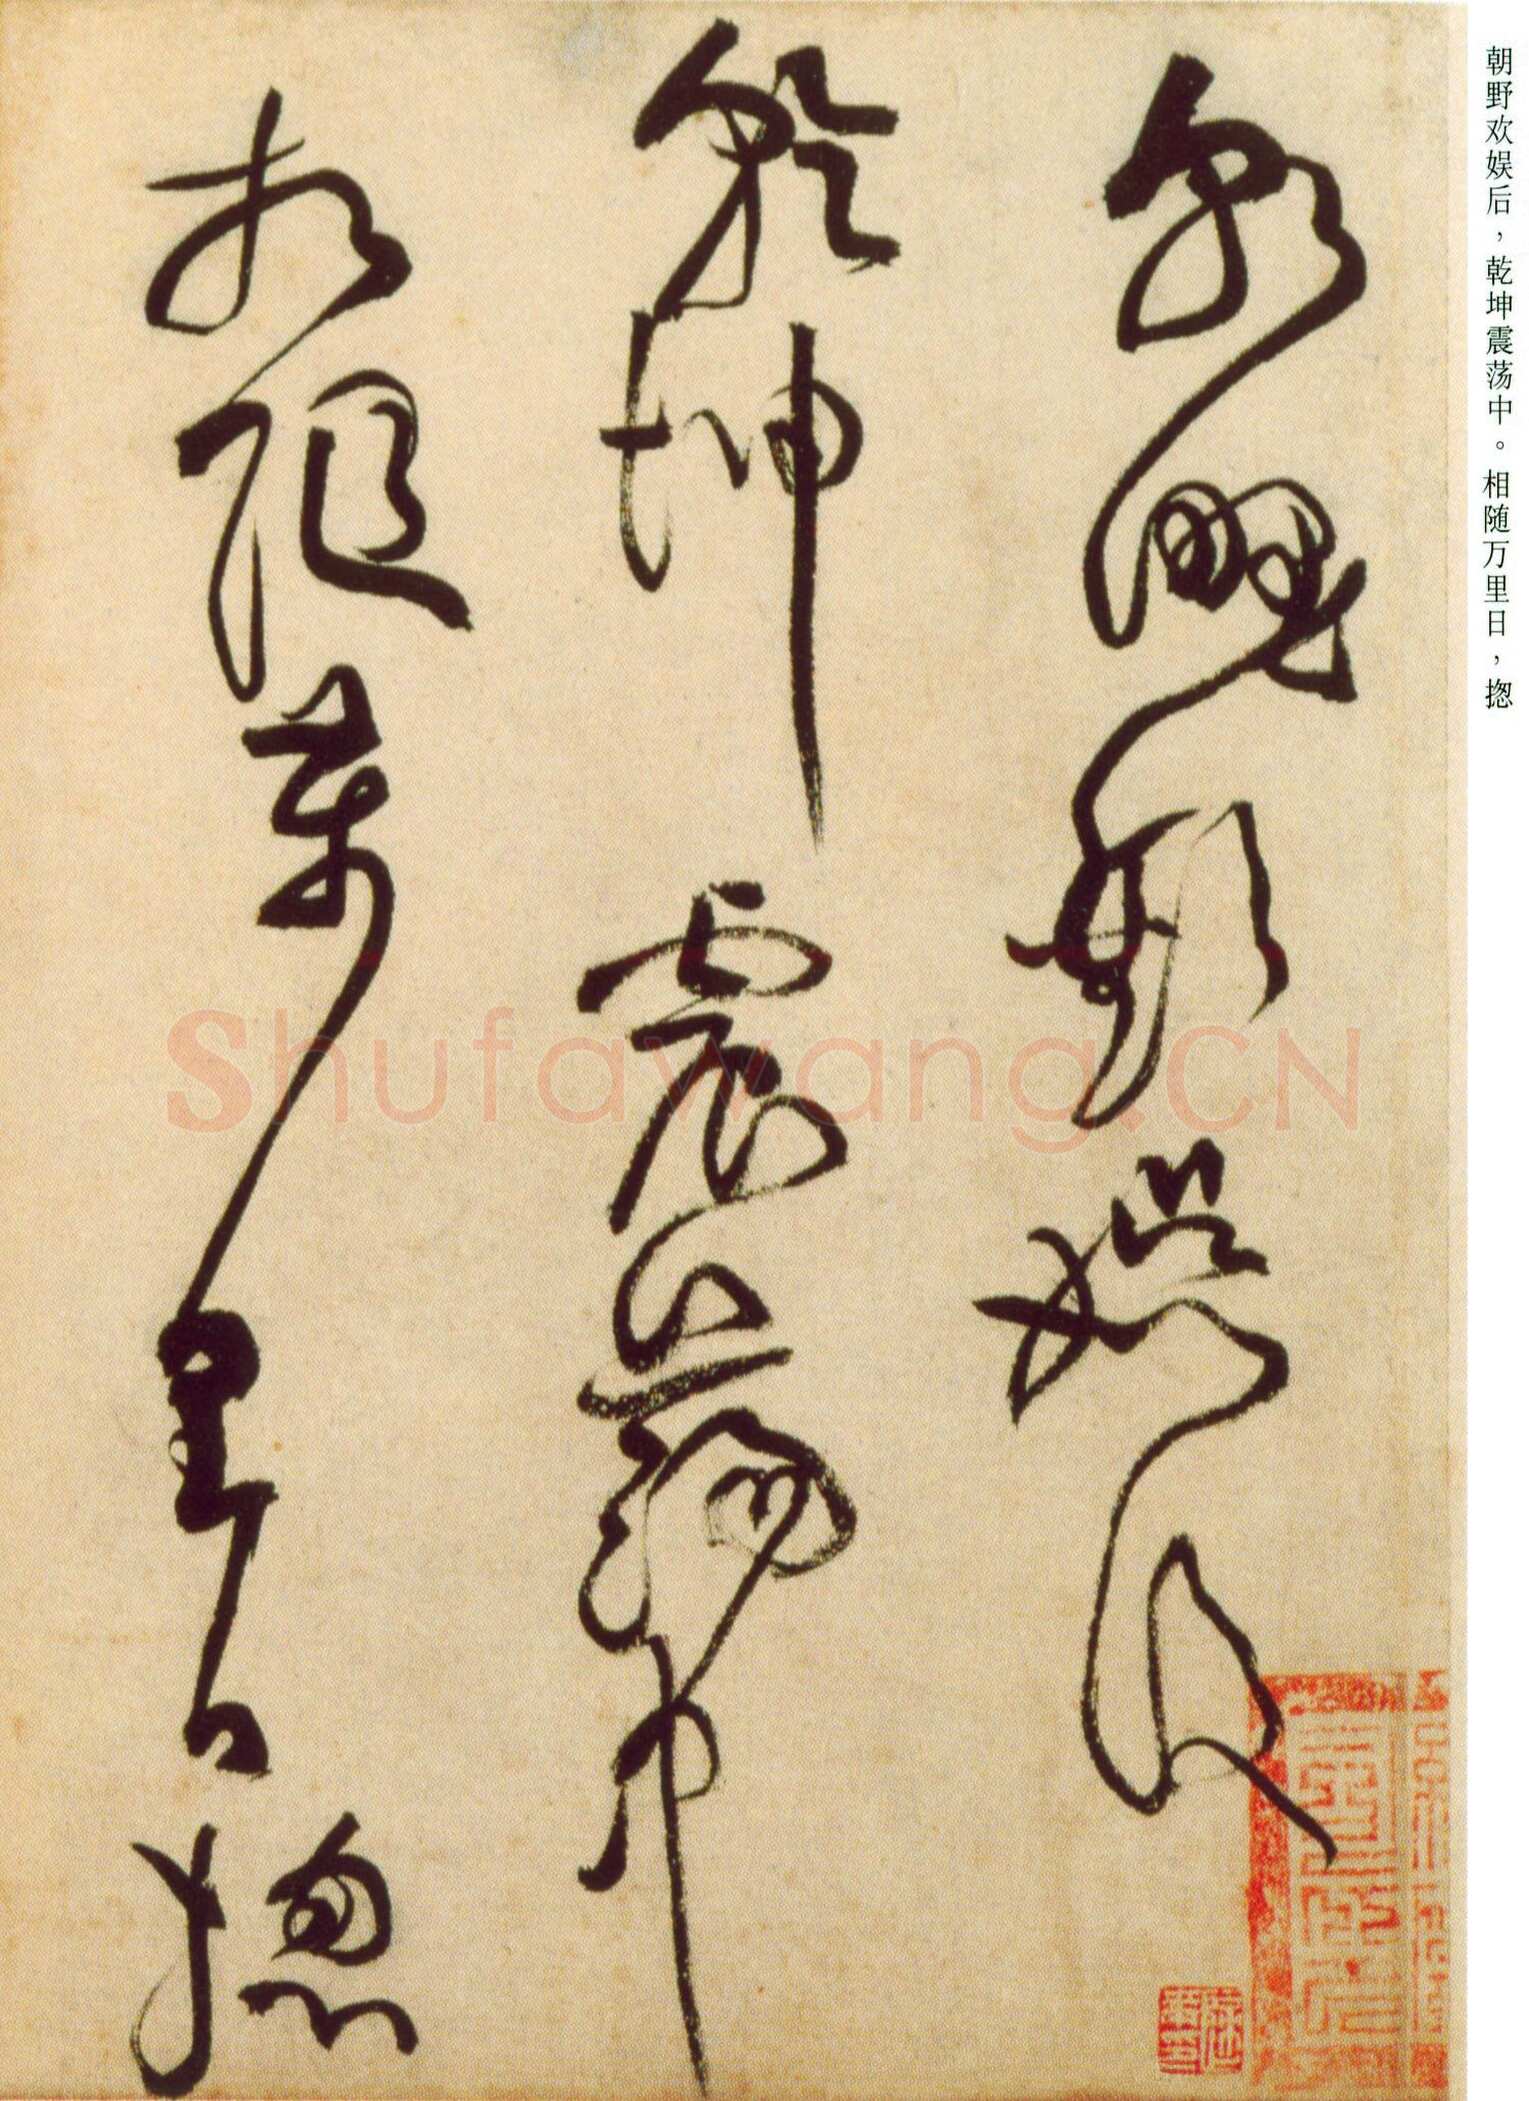 朝野欢娱后，乾坤震荡中。相随万里日，揔
朝野歡娱後
乾坤震蕩中
相随萬里日揔
Shufawang.CN